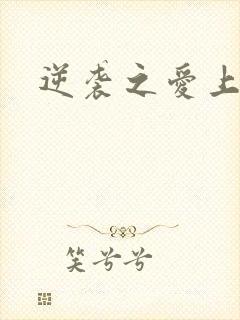 逆袭之愛上
笑兮兮